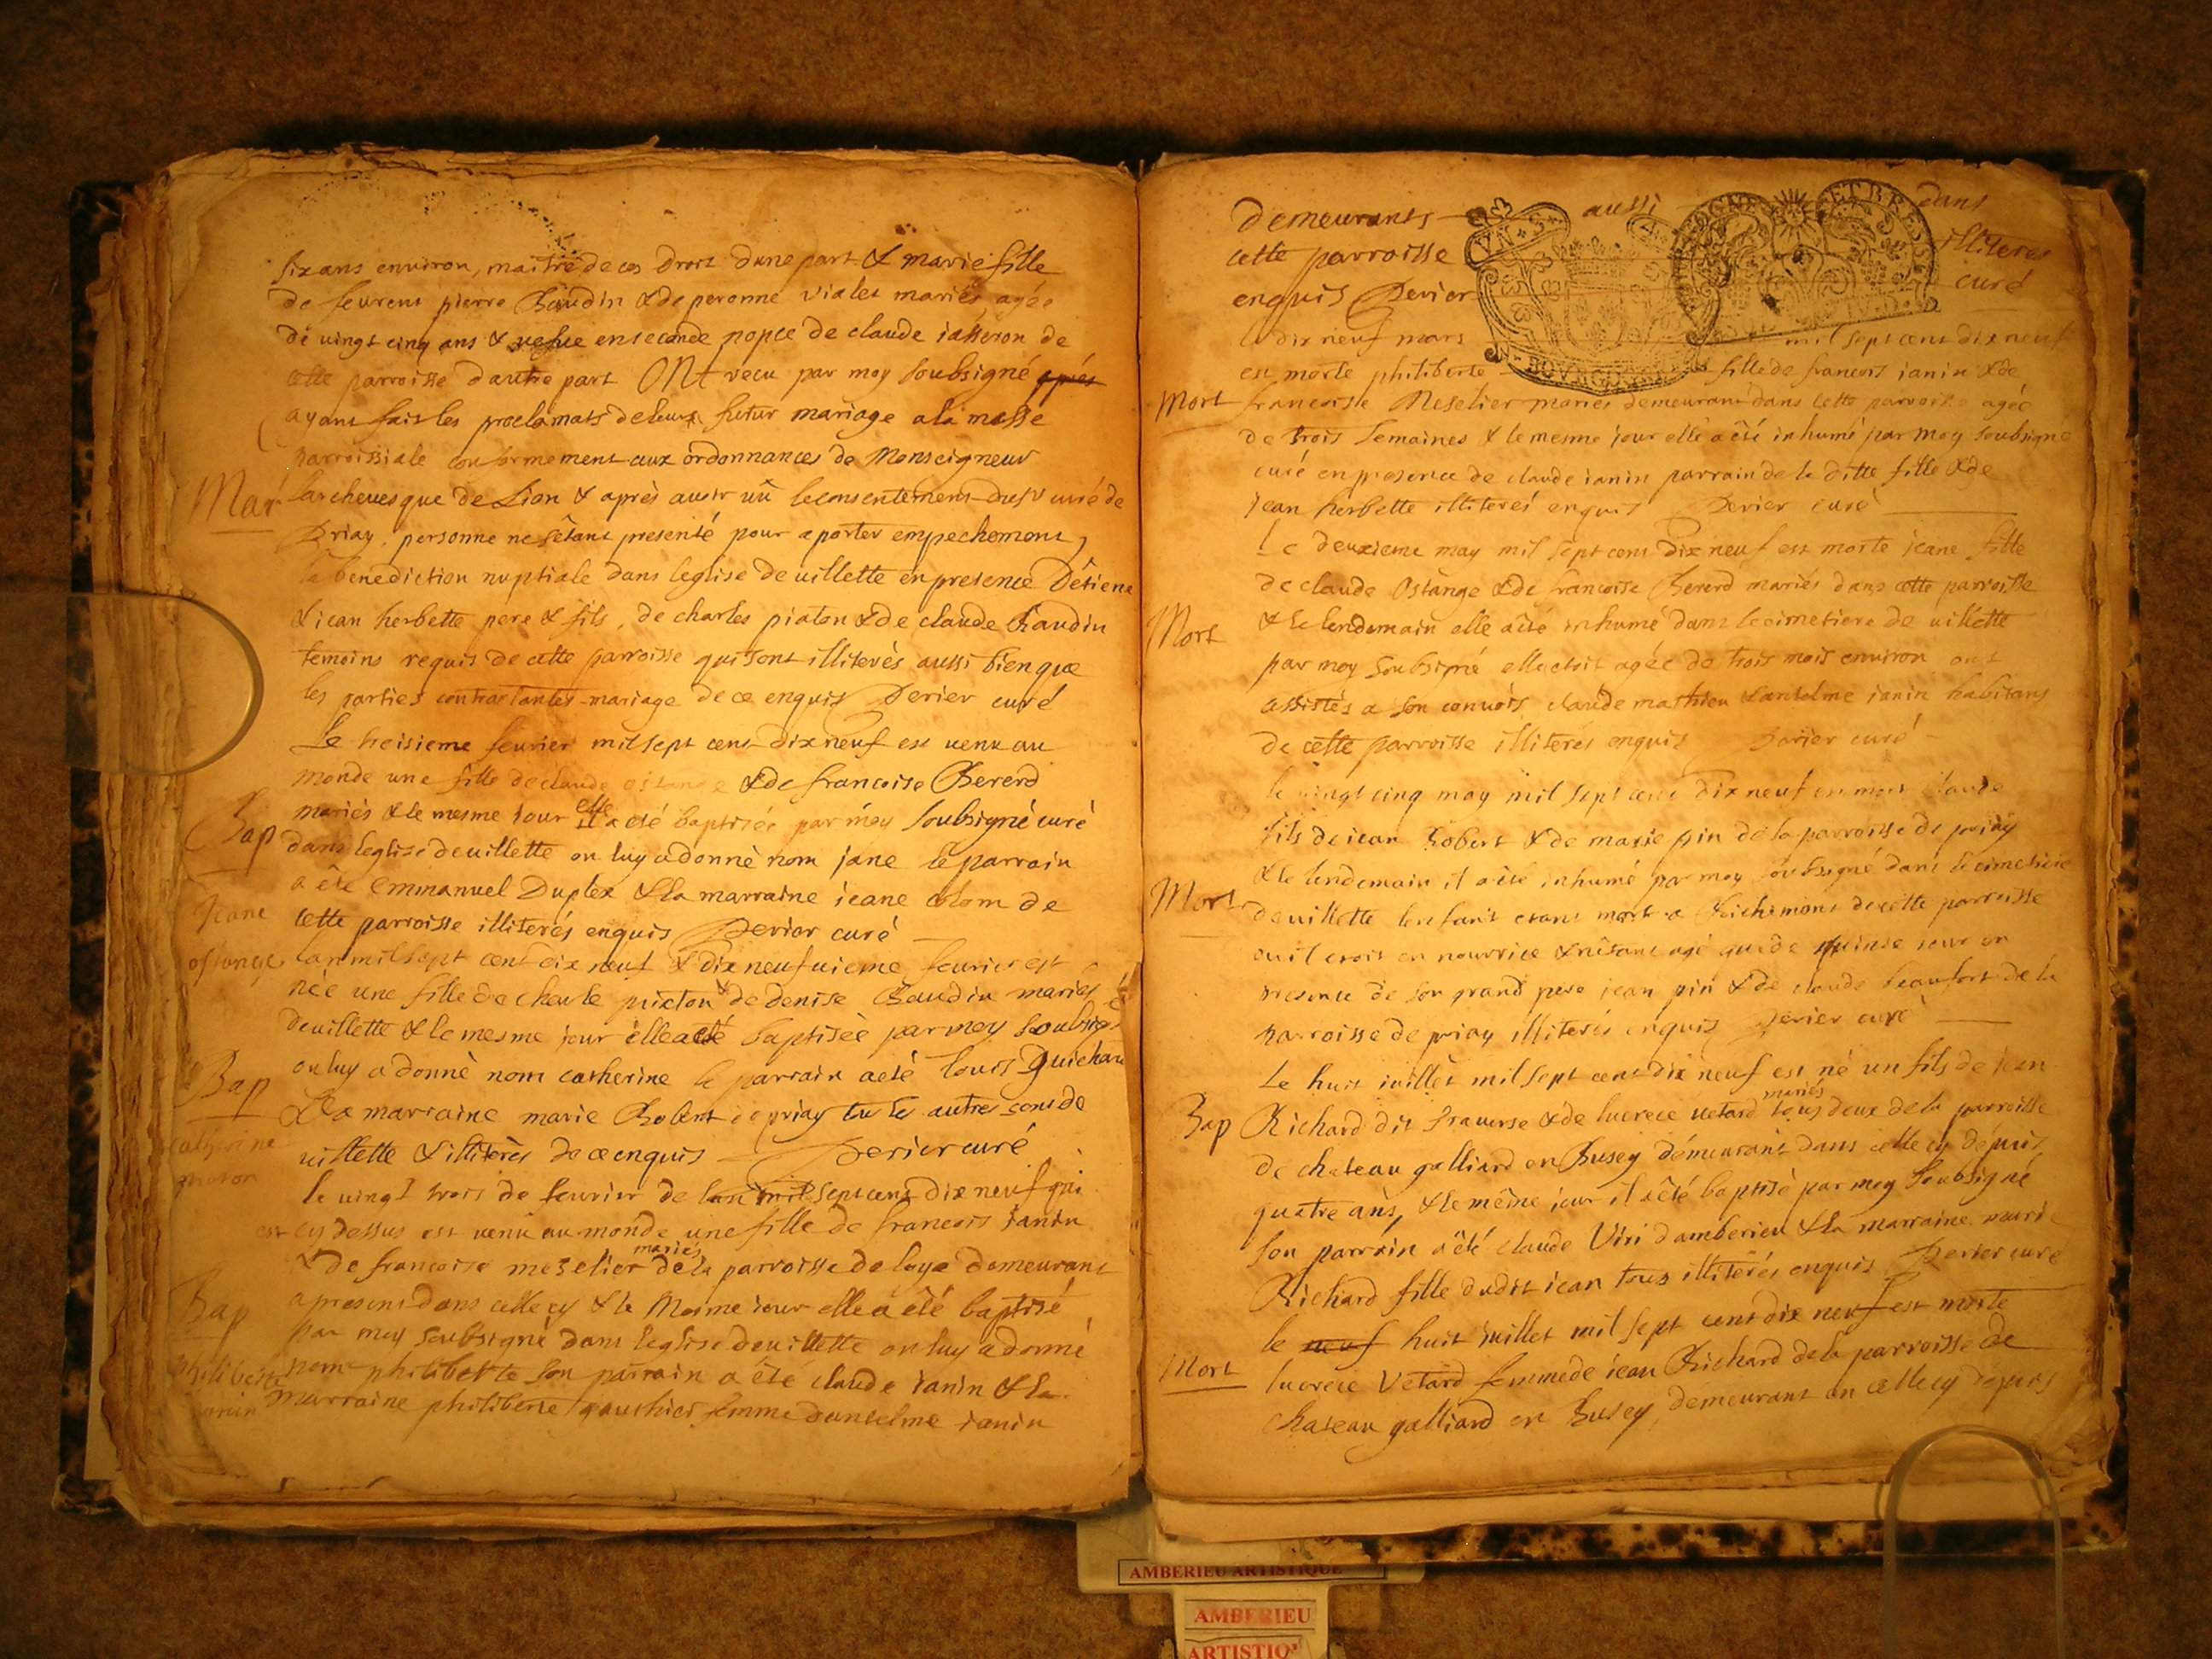 six ans environ, maitre de ces droit dune part & marie fille
de feurent pierre Baudin & de peronne vialet mariés, agée
de vingt cinq ans & vefue en seconde nopce de claude iasseron de
cette parroisse dautre part ONt recu par moy soubsigné après
ayant fait les proclamats de leur futur mariage a la messe
parroissiale conformement aux ordonnances de Monseigneur
Mar larcheuesque de Lion & après auoir uû le consentement du sr curé de
Priay, personne ne sétant presenté pour aporter empechement,
la benediction nuptiale dans leglise de uillette en presence Détiene
& iean herbette pere & fils, de charles piaton & de claude Baudin
temoins requis de cette parroisse qui sont illiterés aussi bien que
les parties contractantes mariage de ce enquis Perier curé
Le treisieme feurier mil sept cent dix neuf est uenu au
monde une fille de claude ostange & de francoise Bererd
mariés & le mesme iour elle a eté baptisée par moy soubsigné curé
Bap dans leglise de uillette on luy a donné nom jane le parrain
a été Emmanuel Duplex & la marraine ieane colom de
Jeane cette parroisse illiterés enquis Perier curé
ostange lan mil sept cent dix neuf & dix neufuieme feurier est
née une fille de charle piaton & de denise Baudin mariés
deuillette & le mesme iour elle a eté baptisée par moy soubsig
Bap on luy a donné nom catherine le parrain a eté louis Guichard
& la marraine marie Robert de priay tu les autres sont de
catherine uillette & illiterés de ce enquis Perier curé
piaton
le uingt trois de feurier de lan mil sept cent dix neuf qui
est cy dessus est uenu au monde une fille de francois ianin
mariés
& de francoise meselier de la parroisse de loye demeurant
Bap a present dans celle cy & le Mesme iour elle a été baptisé
par moy soubsigné dans leglise deuillette on luy a donné
philiberte nom philiberte son parrain a été claude ianin & la
ianin marraine philiberte gauthier femme danselme ianin
demeurants aussi dans
cette parroisse illiteres
enquis Perier curé
le dix neuf mars mil sept cent dix neuf
est morte philiberte fille de francois ianin & de
Mort francoise Meselier mariés demeurant dans cette parroisse agée
de trois semaines & le mesme iour elle a été inhumé par moy soubsigné
curé en presence de claude ianin parrain de la ditte fille & de
jean herbette illiteré enquis Perier curé
Le deuxieme may mil sept cent dix neuf est morte ieane fille
de claude Ostange & de francoise Bererd mariés dans cette parroisse
Mort & le lendemain elle a été inhumé dans le cimetiere de uillette
par moy soubsigné elle etoit agée de trois mois environ ont
assistés a son convois claude mathieu & anselme ianin habitans
de cette parroisse illiterés enquis Perier curé
le uingt cinq may mil sept cent dix neuf est mort claude
fils de iean Robert & de marie pin de la parroisse de priay
& le lendemain il a été inhumé par moy soubsigné dans le cimetiere
Mort deuillette lenfant etant mort a Richemont de cette parroisse
ou il etoit en nourrice & nétant agé que de quinse iour en
presence de son grand pere iean pin & de claude beaufort de la
parroisse de priay illiterés enquis Perier curé
Le huit iuillet mil sept cent dix neuf est né un fils de iean
mariés
Bap Richard dit trauerse & de lucrece vetard tous deux de la parroisse
de chateau galliard en Busey démeurant dans celle cy dépuis
quatre ans, & le mème iour il a été baptisé par moy soubsigné
son parrain a été claude Viri damberieu & la marraine marie
Richard fille dudit iean tous illiterés enquis Perier curé
le neuf huit iuillet mil sept cent dix neuf est morte
Mort lucrece Vetard femme de iean Richard de la parroisse de
Chateau galliard en Busey demeurant en celle cy depuis
AMBERIEU ARTISTIQUE
AMBERIEU
ARTISTIQ